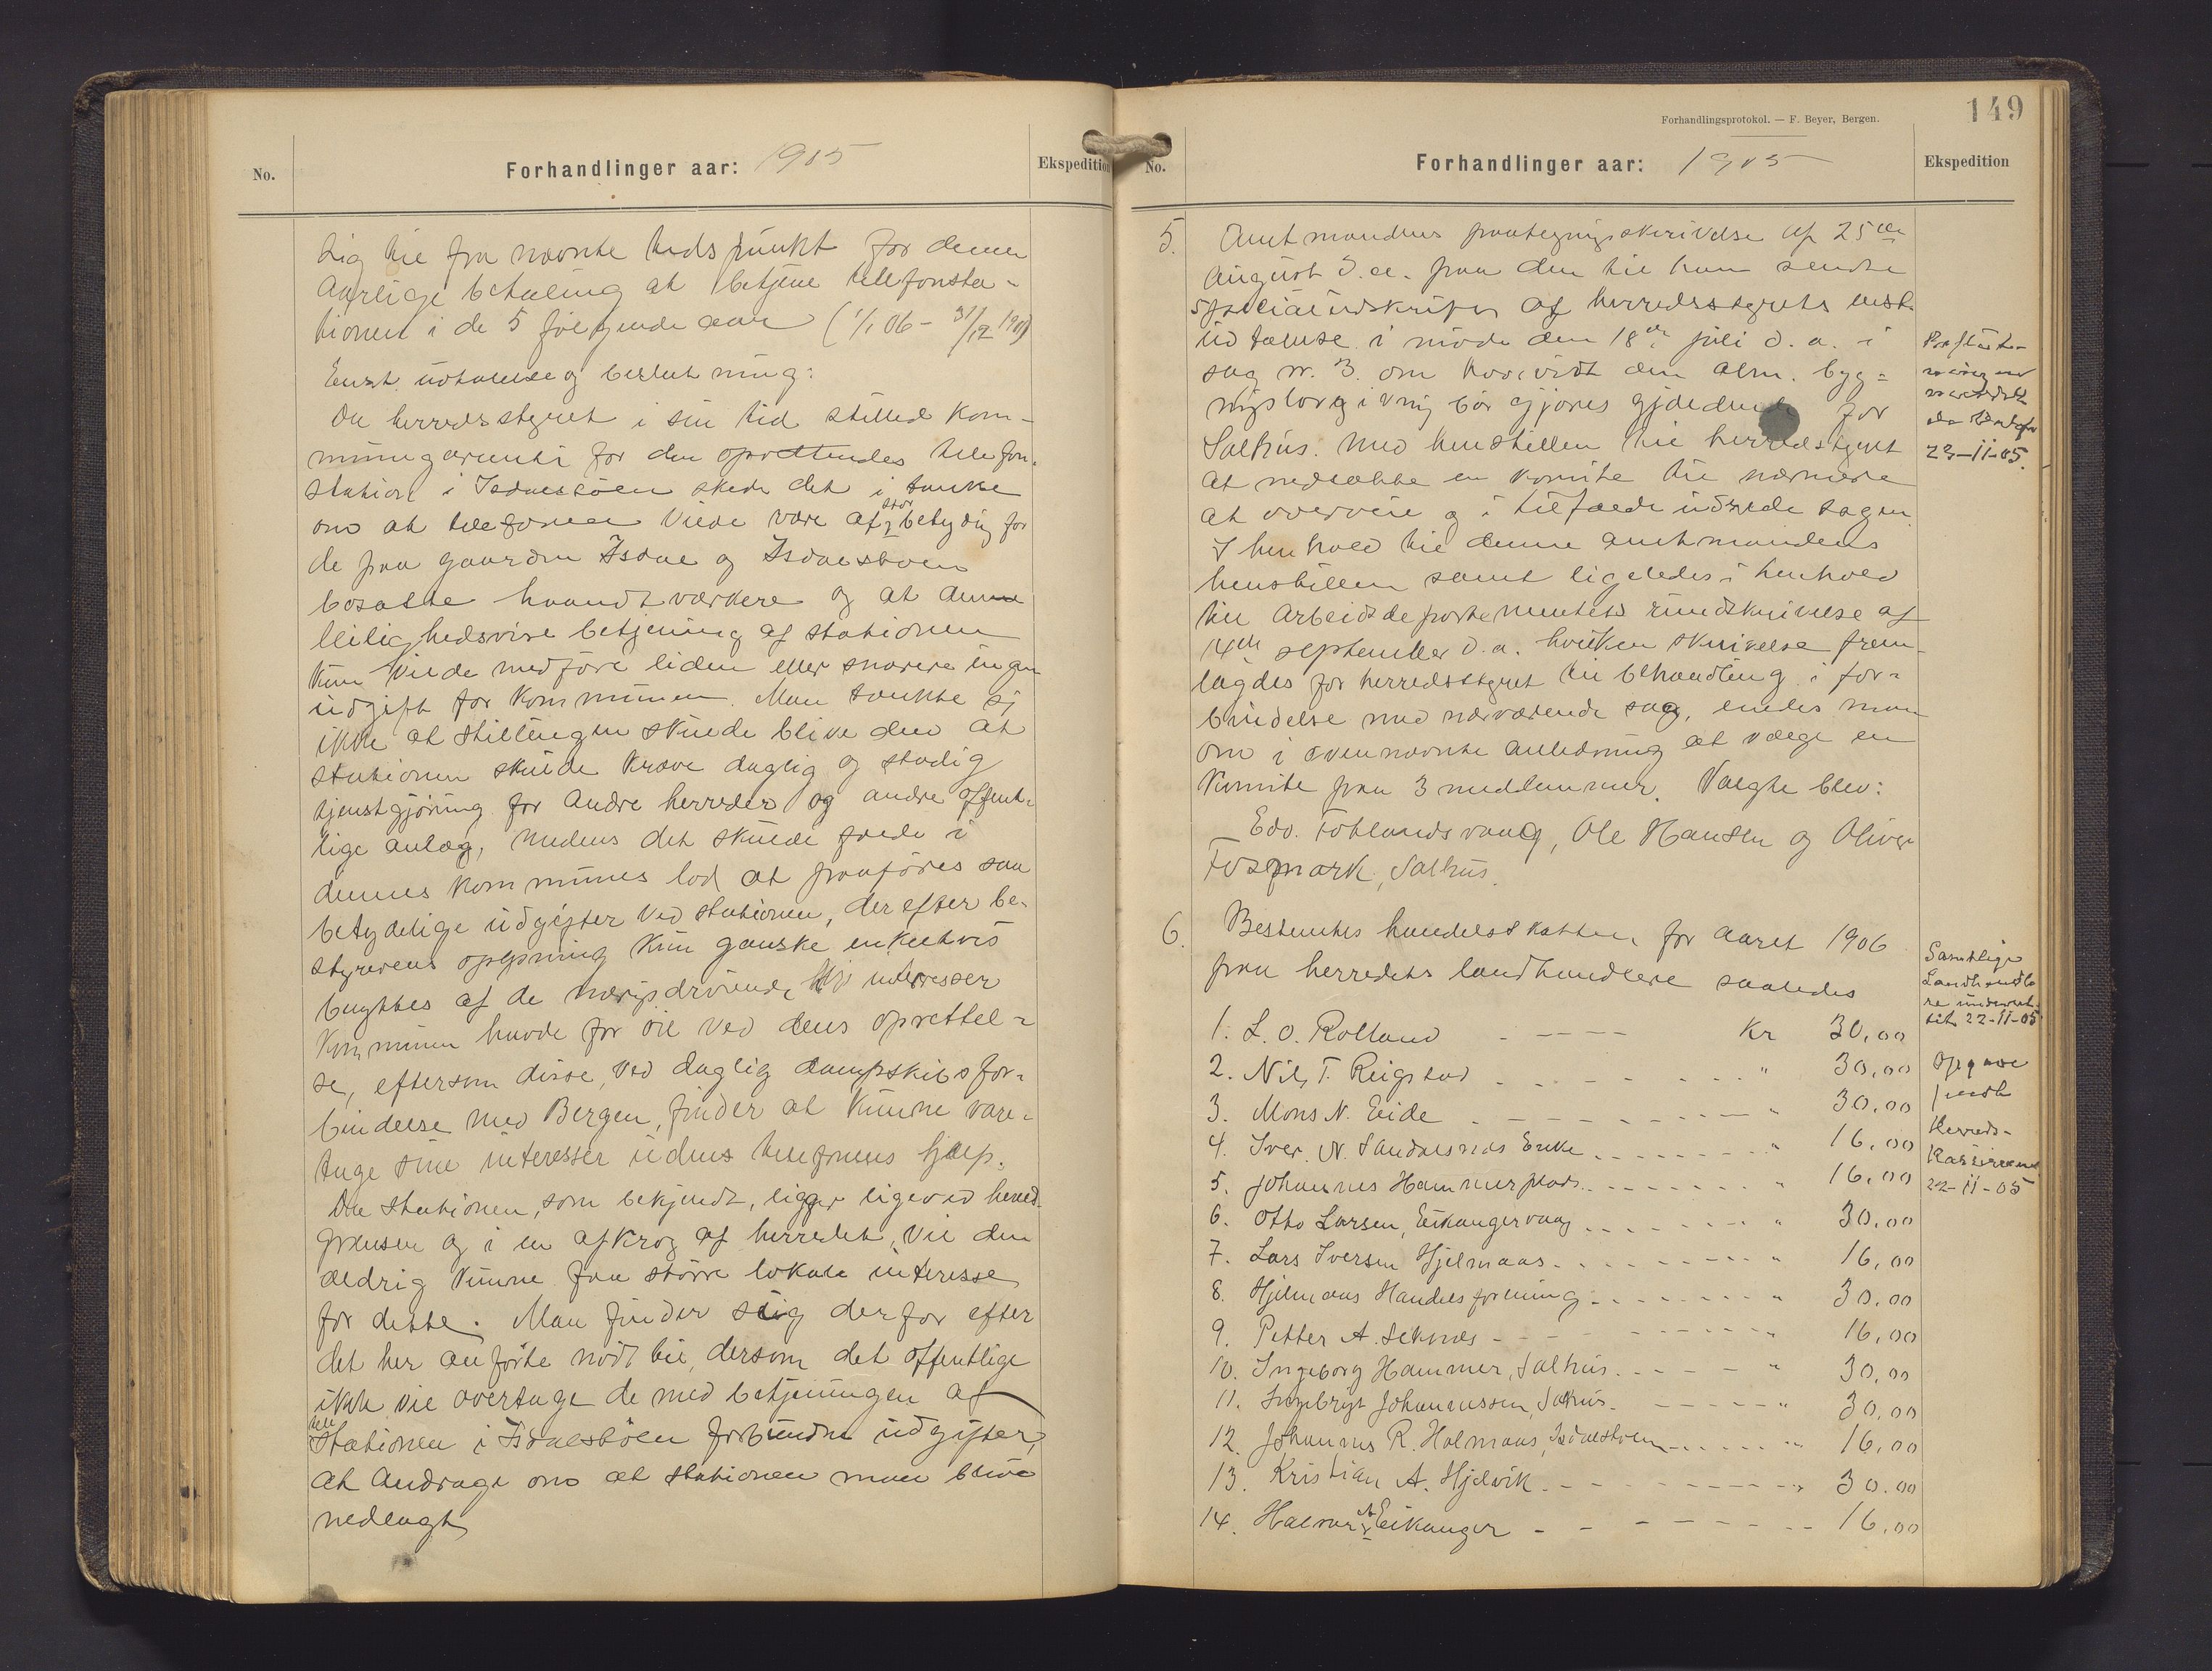 No.
Forhandlinger aar: 1905
Ekspedition
sig til fra nævnte tidspunkt for denne
aarlige betaling at betjene telefonsta-
tionen i de 5 følgende aar (1/1 06 - 31/12 1910)
Enst. udtalelse og beslutning:
Da herredsstyret i sin tid stilled kom-
munegaranti for den oprettendes telefon-
station i Isdalstøen skede det i tanke
om at telefonen vilde være af stor betydnig for
de paa gaarden Isdal og Isdalstøen
bosatte haandtværkere og at denne
leilighedsvise betjening af stationen
kun vilde medføre liden eller snarere ingen
udgift for kommunen. Man tænkte sig
ikke at stillingen skulde blive den at
stationen skulde kræve daglig og stadig
tjenstgjøring for andre herreder og andre offent-
lige anlæg, medens det skulde falde i
dennes kommunes lod at paaføres saa
betydelige udgifter ved stationen, der efter be-
styrerens opgivning kun ganske enkeltvis
benyttes af de nærigsdrivende, hvis interesser
kommunen havde for øie ved dens oprettel-
se, eftersom disse, ved daglig dampskibsfor-
bindelse med Bergen, finder at kunne vare-
tage sine interesser uden telefonens hjælp.
Da stationen, som bekjendt, ligger ligeved herred-
grænsen og i en afkrog af herredet, vil den
aldrig kunne faa større lokale interesse
for dette. Man finder sig derfor efter
det her anførte nødt til, dersom det offentlige
ikke vil overtage de med betjeningen af
telestationen i Isdalstøen forbundne udgifter,
at andrage om at stationen maa blive
nedlagt
Forhandlingsprotokol. — F. Beyer, Bergen.
149
No.
Forhandlinger aar: 1905
Ekspedition
5. Amtmandens paategningsskrivelse af 25de
august d.a. paa den til ham sendte
specialudskrift af herredsstyrets enst.
udtalelse i møde den 18de juli d.a. i
sag nr. 3. om hvorvidt den alm. byg-
nigslovgivnig bør gjøres gjældende for
Salhus. med henstillen til herredsstyret
at nedsætte en komite til nærmere
at overveie og i tilfælde udrede sagen.
I henhold til denne amtmandens
henstillen samt ligeledes i henhold
til Arbeidsdepartementets rundskrivelse af
14de september d.a. hvilken skrivelse frem-
lagdes for herredsstyret til behandling i for-
bindelse med nærværende sag, enedes man
om i ovennævnte anledning at vælge en
komite paa 3 medlemmer. Valgte blev:
Edv. Totlandsvaag, Ole Hansen og Oliver
Fosmark, Salhus.
23-11-05.
6. Bestemtes handelsskatten for aaret 1906
paa herredets landhandlere saaledes
1. L. O. Rolland - - - - Kr 30,00
2. Nils T. Reigstad - - - - " 30,00
3. Mons N. Eide - - - - " 30,00
4. Iver N. Sandalsnes Enke - - - - " 16,00
5. Johannes Hammerplads - - - - " 16,00
6. Otto Larsen, Eikangervaag - - - - " 30,00
7. Lars Iversen Hjelmaas - - - - " 16,00
8. Hjelmaas Handelsforening - - - - " 30,00
9. Petter A. Seknæs - - - - " 16,00
10. Ingeborg Hammer, Salhus - - - - " 30,00
11. Ingebrigt Johannessen, Salhus - - - - " 30,00
12. Johannes R. Holmaas, Isdalstøen - - - - " 16,00
13. Kristian A. Hjelvik - - - - " 30.00
14. Halvor A Eikanger - - - - 16,00
Samtlige
Landhandle
re underret-
tet 22-11-05
Opgave
sendt
Herreds-
kassereren
22-11-05